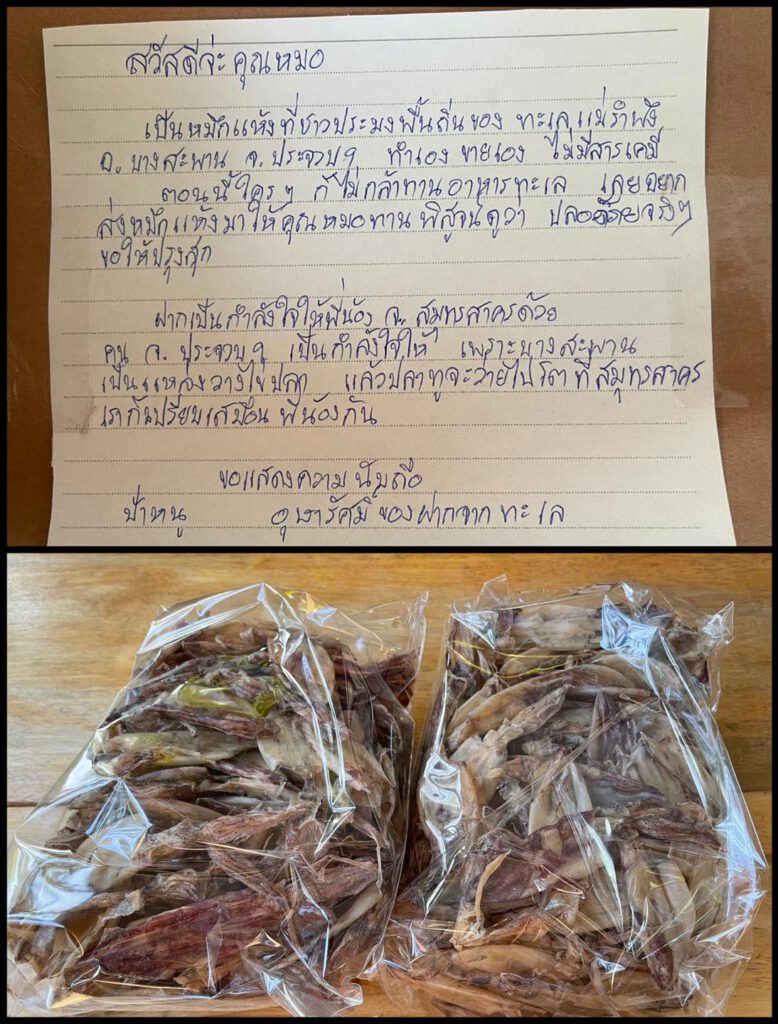 สวัสดีจ่ะคุณหมอ
เป็นหมึกแห้งที่ชาวประมงพื้นถิ่นของ ทะเลแม่รำพึง
อ. บางสะพาน จ. ประจวบฯ ทำเอง ขายเอง ไม่มีสารเคมี
ตอนนี้ใครๆ ก็ไม่กล้าทานอาหารทะเล เลยอยาก
ส่งหมึกแห้งมาให้คุณหมอทาน พิสูจน์ดูว่า ปลอดภัยจริงๆ
ขอให้ปรุงสุก
ฝากเป็นกำลังใจให้พี่น้อง จ. สมุทรสาครด้วย
คน จ. ประจวบฯ เป็นกำลังใจให้ เพราะบางสะพาน
เป็นแหล่งวางไข่ปลา แล้วปลาทูจะว่ายไปโตที่สมุทรสาคร
เราก็เปรียบเสมือน พี่น้องกัน
ขอแสดงความนับถือ
ป้าหนู อุษารัศมี ของฝากจากทะเล